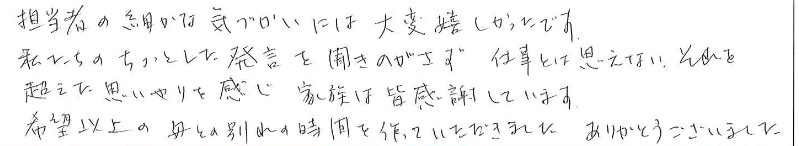 担当者の細かな気づかいには大変嬉しかったです。
私たちのちょっとした発言を聞きのがさず 仕事とは思えない、それを
超えた思いやりを感じ 家族は皆感謝しています。
希望以上の母との別れの時間を作っていただきました ありがとうございました